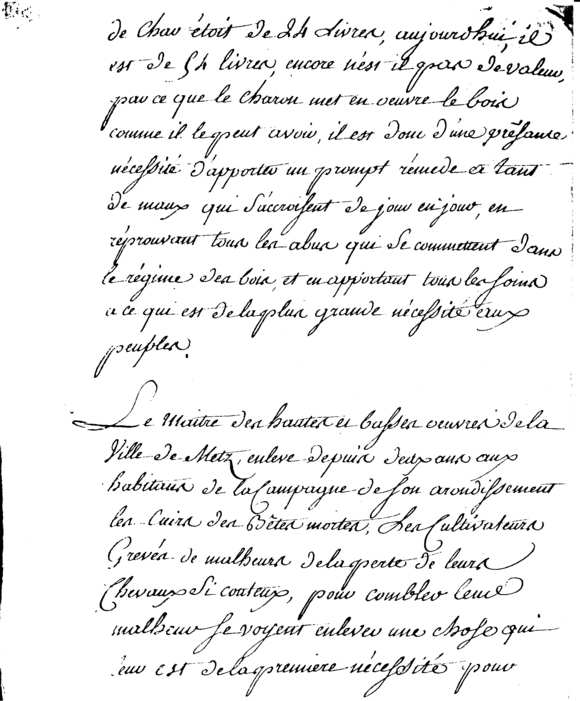 de char étoit de 24 Livres, aujourdhui, il
est de 54 livres, encore n'est il pas de valeur,
par ce que le charon met en oeuvre le bois
comme il le peut avoir, il est donc d'une présante
nécessité d'apporter un prompt rémede a tant
de maux qui s'accroisent de jour en jour, en
réprouvant tous les abus qui se commettent dans
le régime des bois, et en apportant tous les soins
a ce qui est de la plus grande nécessité aux
peuples.
Le Maitre des hautes et basses oeuvres de la
Ville de Metz, enleve depuis deux ans aux
habitans de la Campagne de son arondissement
les Cuirs des Bêtes mortes, Les Cultivateurs
Grevés de malheurs de la perte de leurs
Chevaux si couteux, pour combler leur
malheur se voyent enlever une chose qui
leur est de la premiere nécessité pour